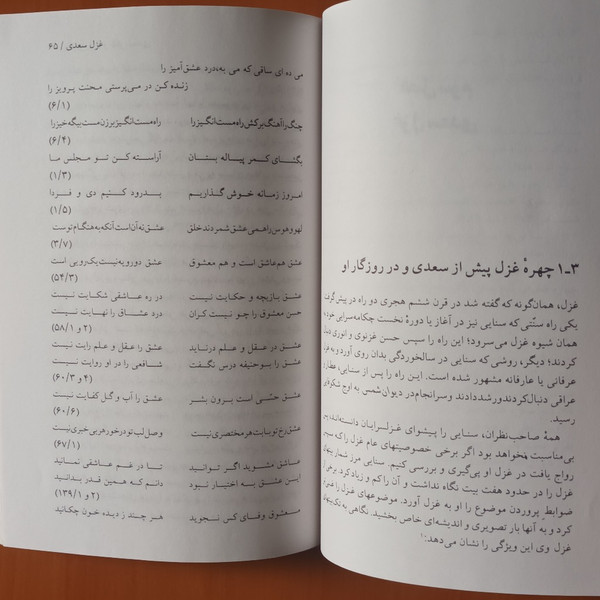 ۱ـ۳ چهرهٔ غزل پیش از سعدی و در روزگار او
غزل، همان‌گونه که گفته شد در قرن ششم هجری دو راه در پیش گرفت
یکی راه سنّتی که سنایی نیز در آغاز یا دورهٔ نخست چکامه‌سرایی خود به
همان شیوه غزل می‌سرود؛ این راه را سپس حسن غزنوی و انوری دنبال
کردند؛ دیگر، روشی که سنایی در سالخوردگی بدان روی آورد و به غزل
عرفانی یا عارفانه مشهور شده است. این راه را پس از سنایی، عطار و
عراقی دنبال کردند و رشد دادند و سرانجام در دیوان شمس به اوج شکوفایی
رسید.
همهٔ صاحب‌نظران، سنایی را پیشوای غزلسرایان دانسته‌اند، پس
بی‌مناسبت نخواهد بود اگر برخی خصوصیتهای عام غزل را که سپس
رواج یافت در غزل او پی‌گیری و بررسی کنیم. سنایی مرز شمار بیتهای
غزل را در حدود هفت بیت نگاه داشت و آن را کم و زیاد کرد. برخی
ضوابط پروردن موضوع را او به غزل آورد. موضوعهای غزل را
کرد و به آنها بار تصویری و اندیشه‌ای خاص بخشید. نگاهی به تک‌بیتهای
غزل وی این ویژگی را نشان می‌دهد:۱
غزل سعدی / ۶۵
می ده ای ساقی که می به، درد عشق آمیز را
زنده کن در می‌پرستی محنت پرویز را
(۶/۱)
چنگ را آهنگ برکش راه مست انگیز را راه مست انگیز بر زن مست بیگه خیز را
(۶/۴)
بگشای کمر پیاله بستان آراسته کن تو مجلس ما
(۱/۳)
امروز زمانه خوش گذاریم بدرود کنیم دی و فردا
(۱/۵)
لهو و هوس را همی عشق شمردند خلق عشق نه آن است آنکه به هنگام توست
(۳/۷)
عشق هم عاشق است و هم معشوق عشق دورویه نیست یک‌رویی است
(۵۴/۳)
عشق بازیچه و حکایت نیست در ره عاشقی شکایت نیست
حسن معشوق را چو نیست کران درد عشاق را نهایت نیست
(۵۸/۱ و ۲)
عشق در عقل و علم درناید عشق را عقل و علم رایت نیست
عشق را بوحنیفه درس نگفت شافعی را در او روایت نیست
(۶۰/۳ و ۴)
عشق حسّی است برون بشر عشق را آب و گل کفایت نیست
(۶۰/۶)
عشق رخ تو بابت هر مختصری نیست وصل لب تو در خور هر بی‌خبری نیست
(۶۷/۱)
عاشق مشوید اگر توانید تا در غم عاشقی نمانید
این عشق به اختیار نبود دانم که همین قدر بدانید
(۱۳۹/۱ و ۲)
معشوق وفای کس نجوید هر چند ز دیده خون چکانید